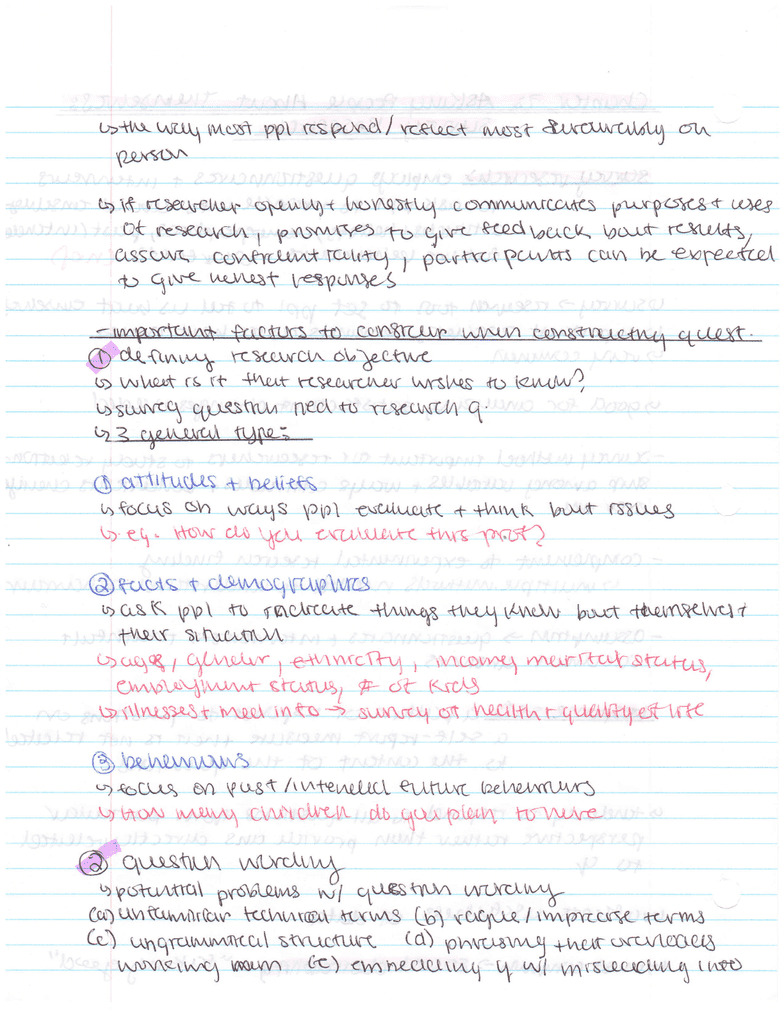 ↳ the way most ppl respond/reflect most favourably on
person
↳ if researcher openly + honestly communicates purposes + uses
of research, promises to give feedback bout results,
assure confidentiality, participants can be expected
to give honest responses
- important factors to consider when constructing quest.
① defining research objective
↳ what is it that researcher wishes to know?
↳ survey question tied to research q.
↳ 3 general type:
① attitudes + beliefs
↳ focus on ways ppl evaluate + think bout issues
↳ eg. How do you evaluate this prof?
② facts + demographics
↳ ask ppl to indicate things they know bout themselves +
their situation
↳ ages, gender, ethnicity, income, marital status,
employment status, # of kids
↳ illnesses + med info → survey of health + quality of life
③ behaviours
↳ focus on past/intended future behaviours
↳ How many children do you plan to have
② question wording
↳ potential problems w/ question wording
(a) unfamiliar technical terms (b) vague/imprecise terms
(c) ungrammatical structure (d) phrasing that overloads
working mem (e) embedding q w/ misleading info